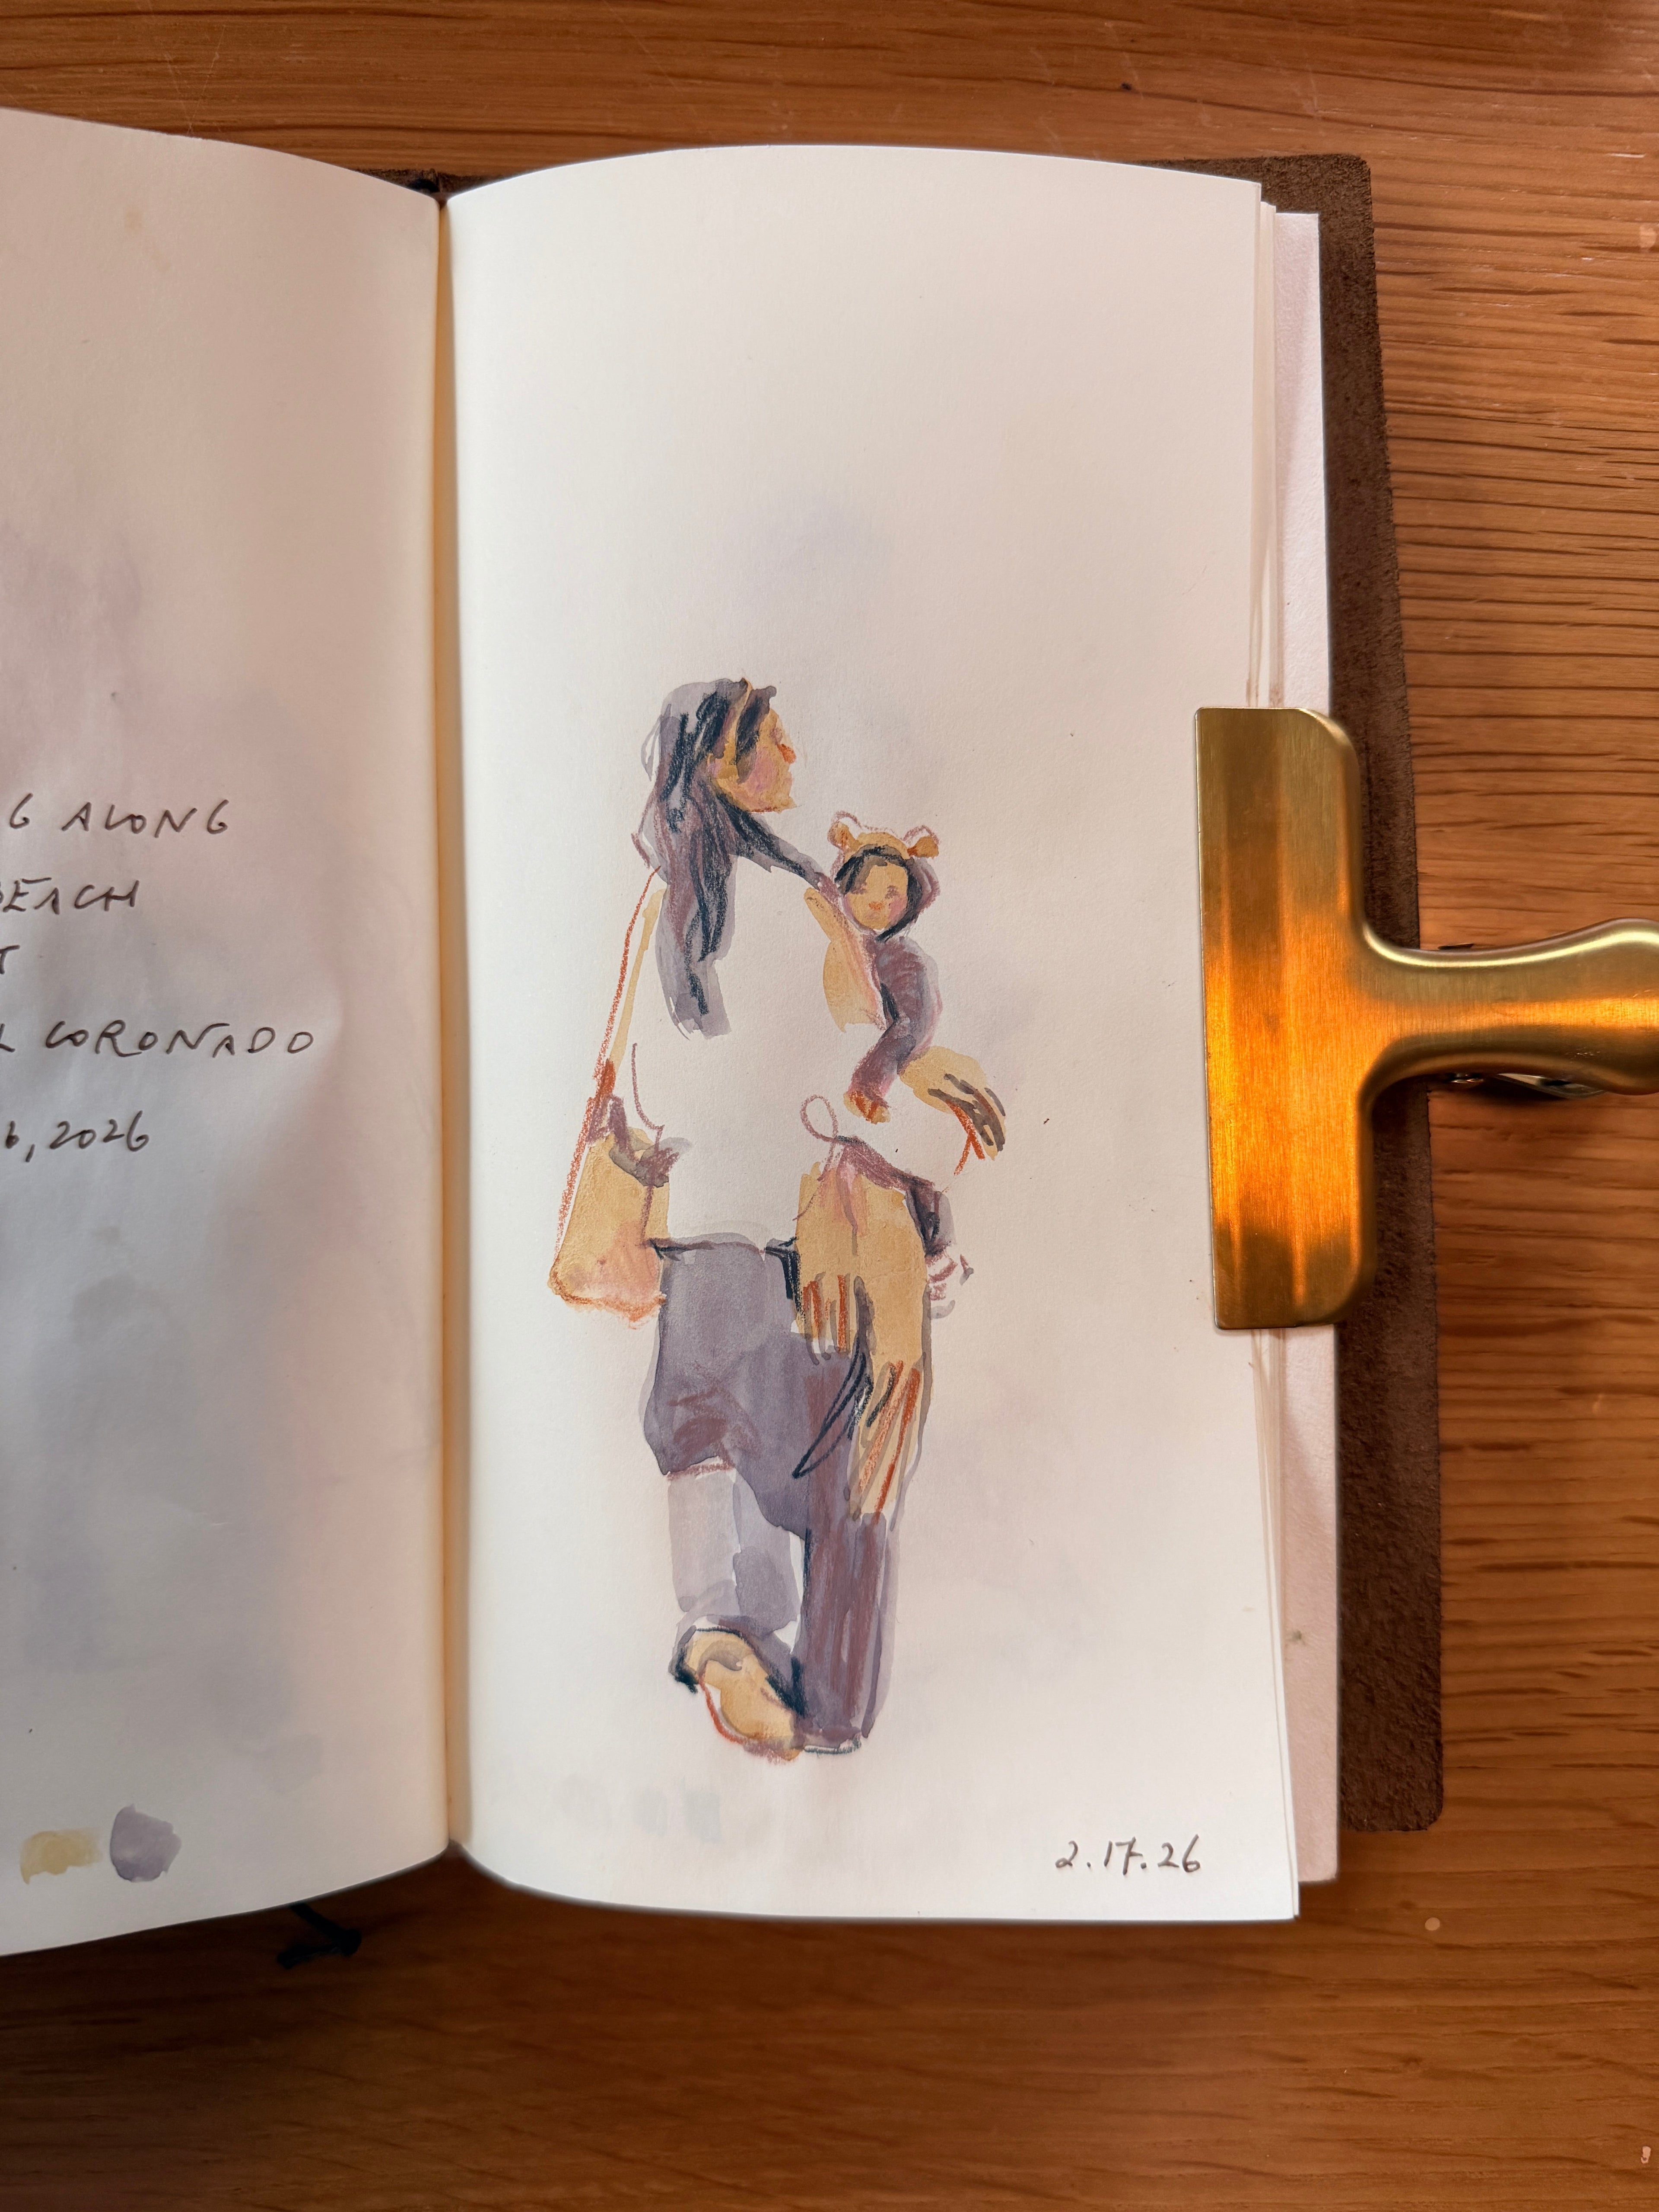 G ALONG
BEACH
L CORONADO
6, 2026
2.17.26